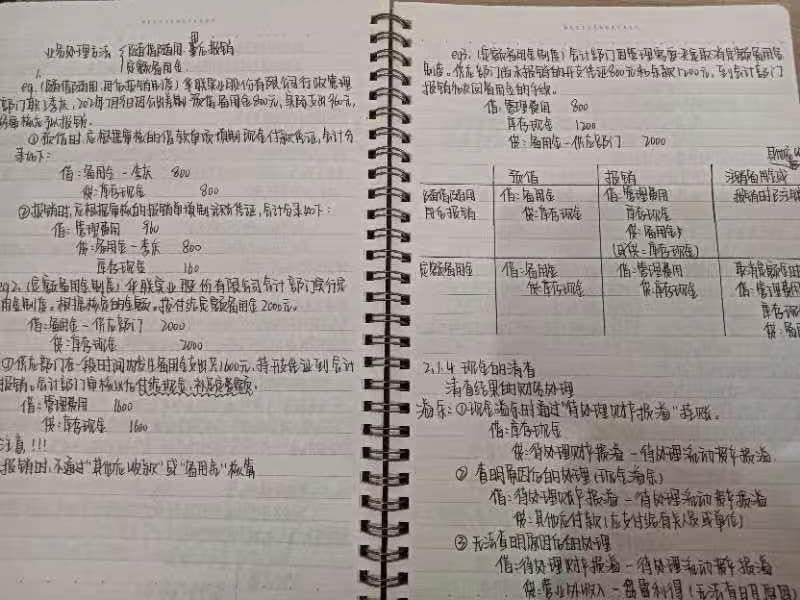 业务处理方法 { 随借随用、用后报销
定额备用金
eg1.(随借随用、用后报销制度)华联实业股份有限公司行政管理
部门职工李庆,
预借备用金800元,实际支出960元,
①预借时,应根据审核的借款单填制现金付款凭证,会计分
录如下:
借:备用金-李庆 800
贷:库存现金 800
②报销时,应根据审核的报销单填制凭证,会计分录如下:
借:管理费用 960
贷:备用金-李庆 800
库存现金 160
eg2.(定额备用金制度)华联实业股份有限公司会计部门实行定
用金制度。根据核定的金额,拨付给定额备用金2000元。
借:备用金-供应部门 2000
贷:库存现金 2000
①供应部门在一段时间内发生备用金支出共1600元,持开支凭证到会计
报销。会计部门审核以后付给现金,补足定额。
借:管理费用 1600
贷:库存现金 1600
注意!!!
报销时,不通过“其他应收款”或“备用金”核算
eg3.(定额备用金制度)会计部门因管理需要决定取消定额备用金
制度。供应部门尚未报销的开支凭证800元和余款1200元,到会计部门
报销
借:管理费用 800
库存现金 1200
贷:备用金-供应部门 2000
预借 报销
随借随用 借:备用金 借:管理费用 报销时
用后报销 贷:库存现金 库存现金
贷:备用金
(或贷:库存现金)
定额备用金 借:备用金 借:管理费用 取消定额
贷:库存现金 贷:库存现金 借:管理费用
库存现金
贷:备
2.1.4 现金的清查
清查结果的财务处理
①现金溢余时通过“待处理财产损溢”挂账。
借:库存现金
贷:待处理财产损溢-待处理流动资产损溢
②查明原因后的处理(现金溢余)
借:待处理财产损溢-待处理流动资产损溢
贷:其他应付款(应支付给有关人员或单位)
③无法查明原因后的处理
借:待处理财产损溢-待处理流动资产损溢
贷:营业外收入-盘盈利得(无法查明原因)